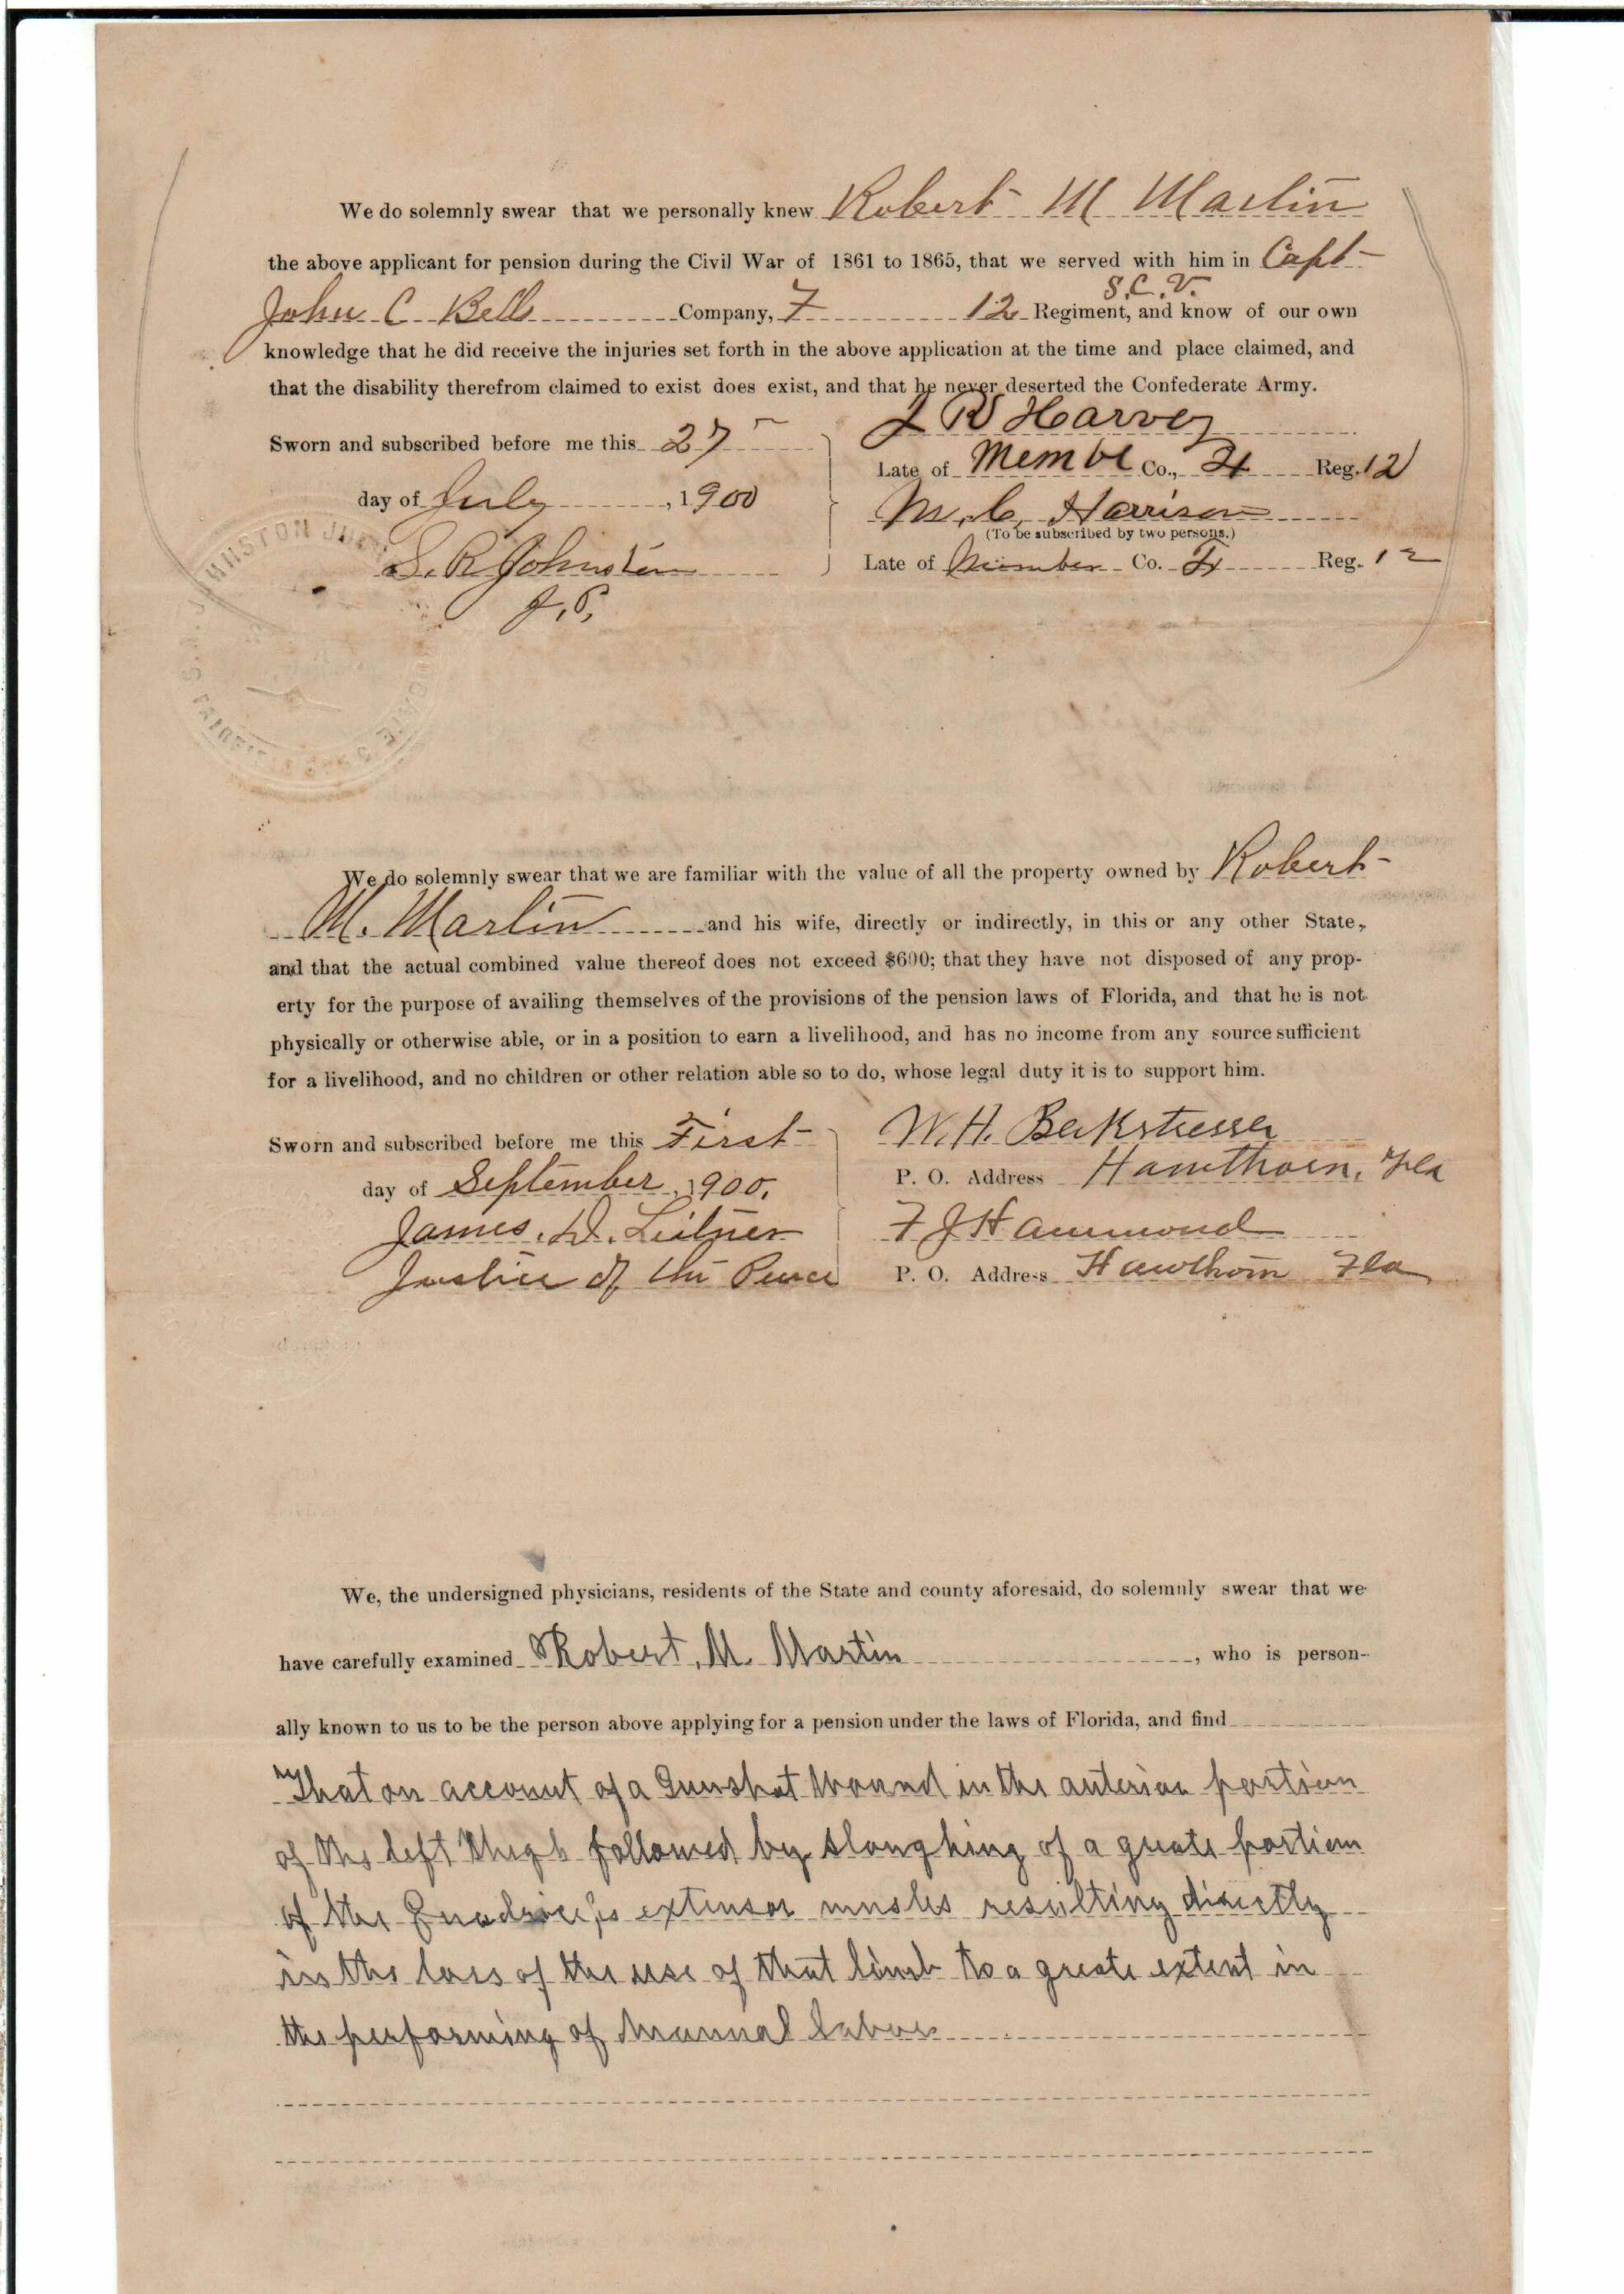 We do solemnly swear that we personally knew Robert M Martin
the above applicant for pension during the Civil War of 1861 to 1865, that we served with him in Capt
S.C.V.
John C Bells Company, F 12 Regiment, and know of our own
knowledge that he did receive the injuries set forth in the above application at the time and place claimed, and
that the disability therefrom claimed to exist does exist, and that he never deserted the Confederate Army.
Sworn and subscribed before me this 27 J R Harvey
Late of Membe Co., F Reg. 12
day of July, 1900
M. C. Harrison
(To be subscribed by two persons.)
S. R. Johnston Late of Member Co. F Reg. 12
J. P.
We do solemnly swear that we are familiar with the value of all the property owned by Robert
M. Martin and his wife, directly or indirectly, in this or any other State,
and that the actual combined value thereof does not exceed $600; that they have not disposed of any prop-
erty for the purpose of availing themselves of the provisions of the pension laws of Florida, and that he is not
physically or otherwise able, or in a position to earn a livelihood, and has no income from any source sufficient
for a livelihood, and no children or other relation able so to do, whose legal duty it is to support him.
Sworn and subscribed before me this First W. H. Berkstresser
day of September, 1900. P. O. Address Hawthorn, Fla
James. D. Leitner F J Hammond
Justice of the Peace P. O. Address Hawthorn Fla
We, the undersigned physicians, residents of the State and county aforesaid, do solemnly swear that we
have carefully examined Robert. M. Martin, who is person-
ally known to us to be the person above applying for a pension under the laws of Florida, and find
That on account of a Gunshot Wound in the anterior portion
of the left thigh followed by sloughing of a greate portion
of the Quadriceps extensor musles resulting directly
in the loss of the use of that limb to a greate extent in
the performing of Manual labor